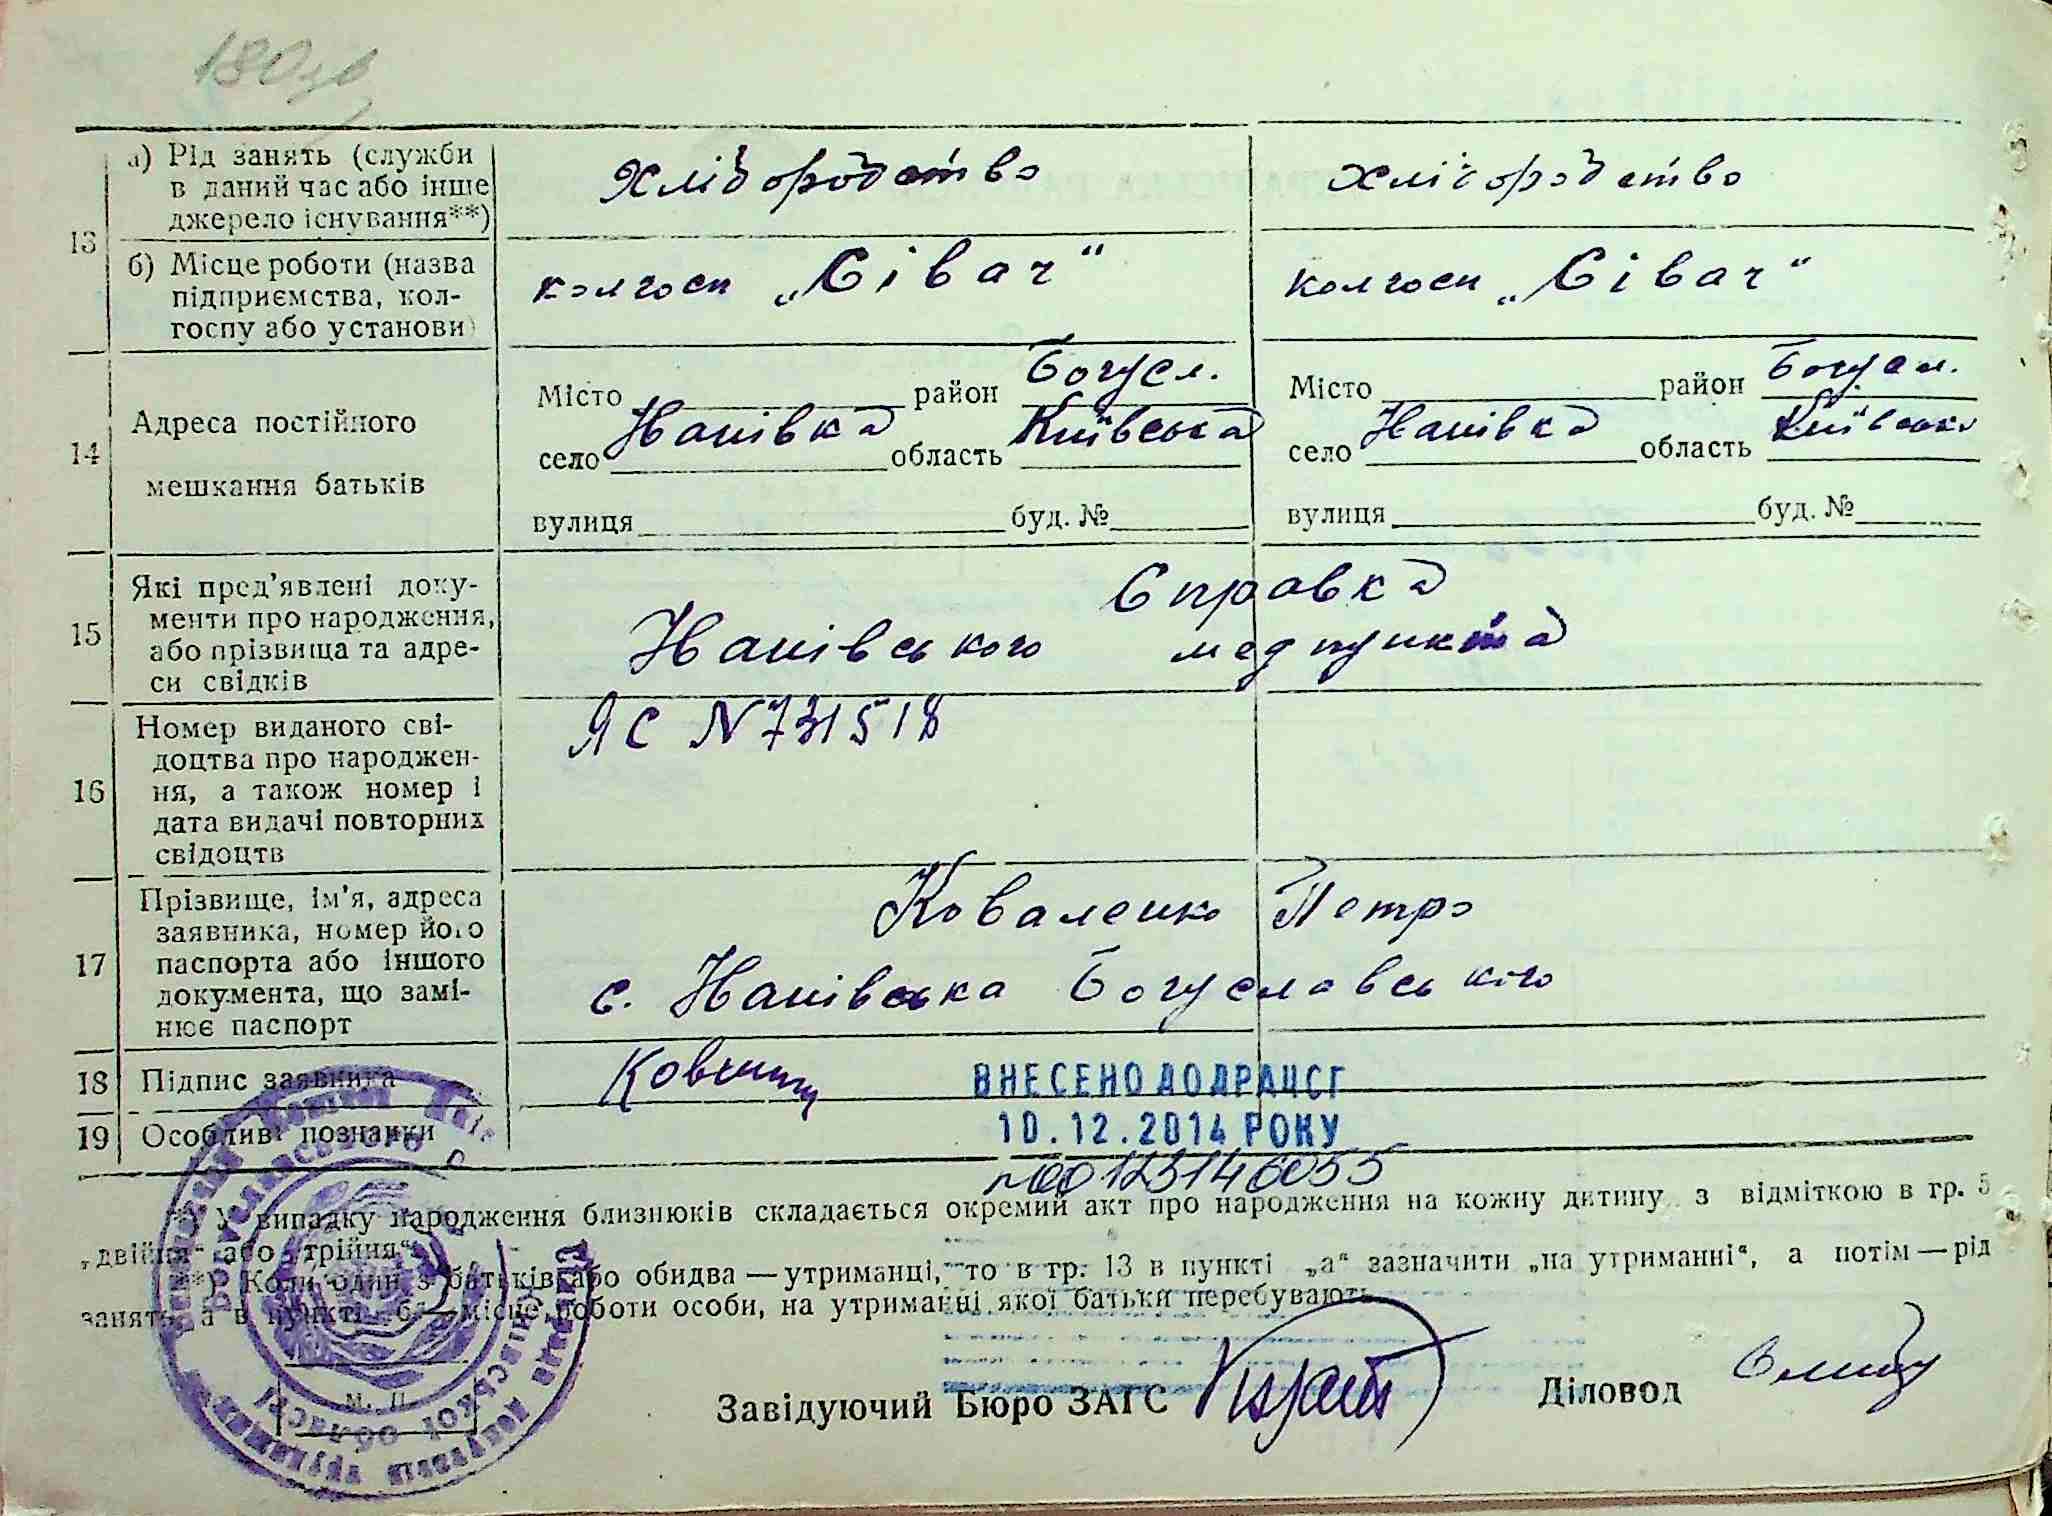 180зв
а) Рід занять (служби
в даний час або інше
джерело існування**)
хліборобство
хліборобство
13
б) Місце роботи (назва
підприємства, кол-
госпу або установи)
колгосп „Сівач“
колгосп „Сівач“
14
Адреса постійного
мешкання батьків
Місто район Богусл.
село Нанівка область Київська
вулиця буд. №
Місто район Богусл.
село Нанівка область Київська
вулиця буд. №
15
Які пред’явлені доку-
менти про народження,
або прізвища та адре-
си свідків
Справка
Нанівського медпункта
16
Номер виданого сві-
доцтва про народжен-
ня, а також номер і
дата видачі повторних
свідоцтв
ЯС N 731518
17
Прізвище, ім’я, адреса
заявника, номер його
паспорта або іншого
документа, що замі-
нює паспорт
Коваленко Петро
с. Нанівська Богуславського
18 Підпис заявника
19 Особливі познаки
ВНЕСЕНО ДО ДРАЦСГ
10.12.2014 РОКУ
№00123146055
*) У випадку народження близнюків складається окремий акт про народження на кожну дитину з відміткою в гр. 5
„двійня“ або „трійня“.
**) Коли один з батьків або обидва — утриманці, то в гр. 13 в пункті „а“ зазначити „на утриманні“, а потім — рід
занять, а в пункті „б“ — місце роботи особи, на утриманні якої батьки перебувають.
М. П.
Завідуючий Бюро ЗАГС
Діловод